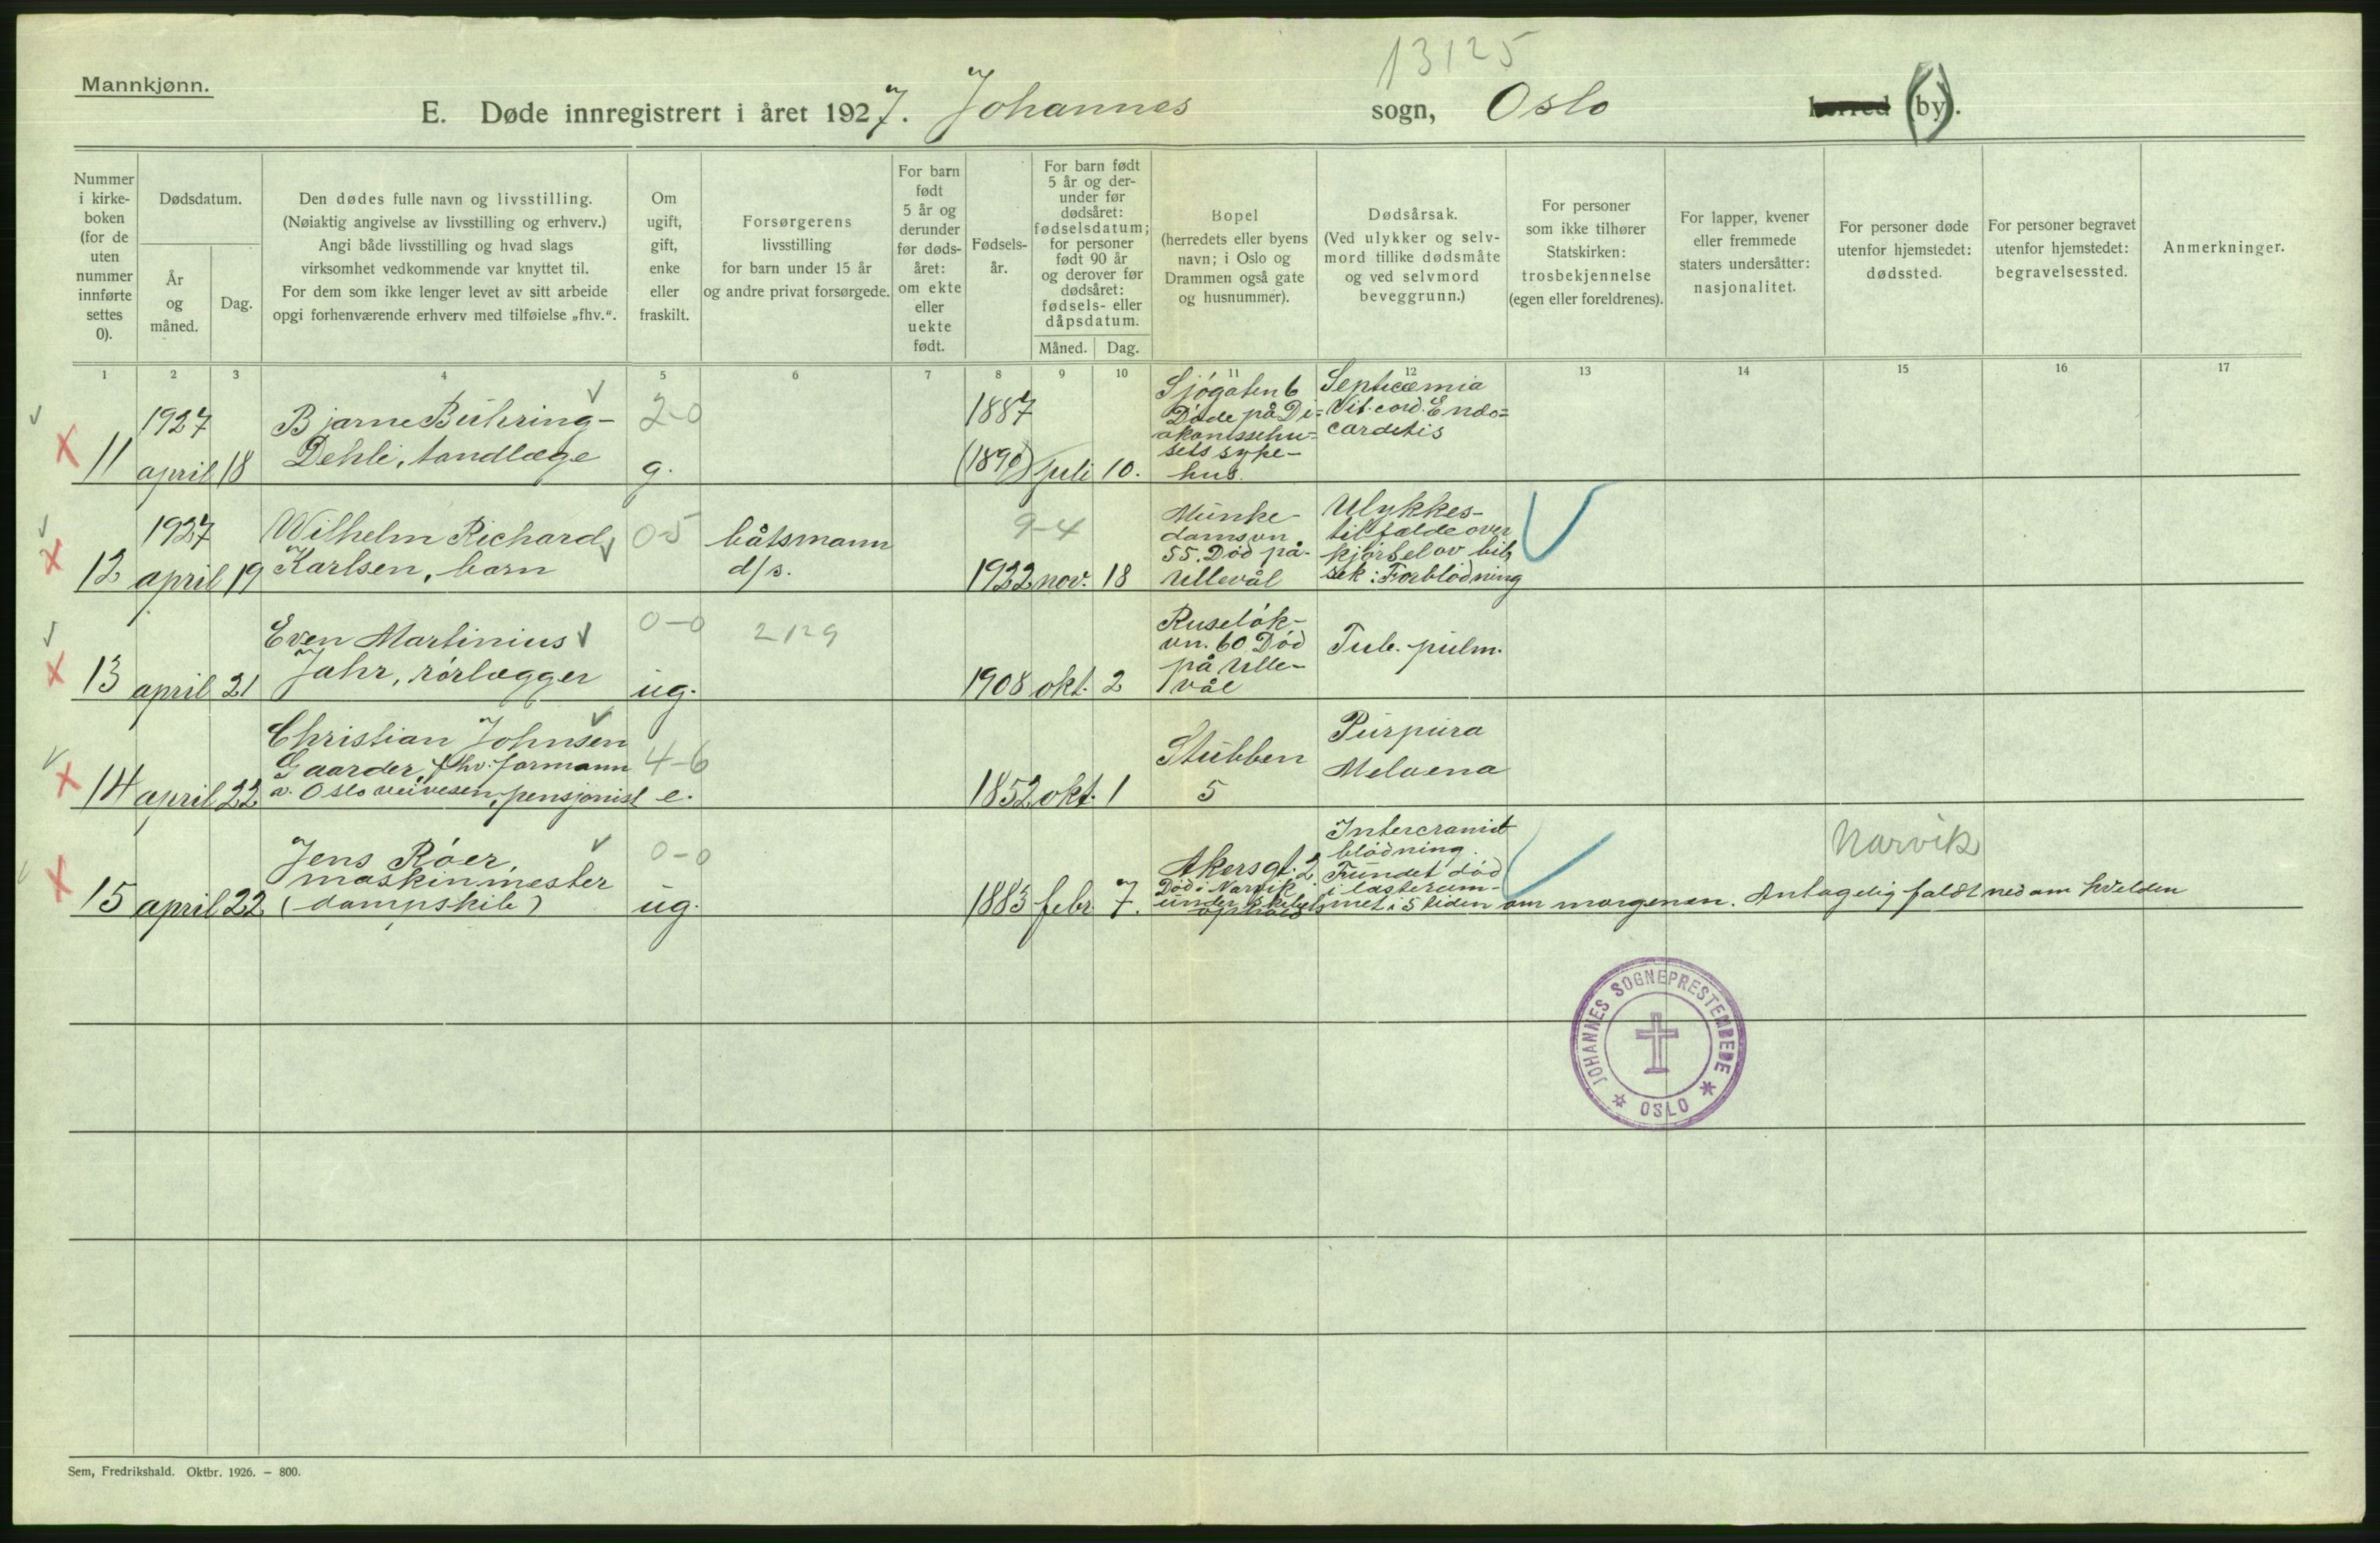 13125
Mannkjønn.
E. Døde innregistrert i året 1927. Johannes sogn, Oslo herred (by).
Nummer i kirkeboken (for de uten nummer innførte settes 0).
Dødsdatum.
År og måned.
Dag.
Den dødes fulle navn og livsstilling.
(Nøiaktig angivelse av livsstilling og erhverv.)
Angi både livsstilling og hvad slags
virksomhet vedkommende var knyttet til.
For dem som ikke lenger levet av sitt arbeide
opgi forhenværende erhverv med tilføielse „fhv.“.
Om ugift, gift, enke eller fraskilt.
Forsørgerens
livsstilling
for barn under 15 år
og andre privat forsørgede.
For barn født 5 år og derunder før dødsåret: om ekte eller uekte født.
Fødselsår.
For barn født 5 år og derunder før dødsåret: fødselsdatum; for personer født 90 år og derover før dødsåret: fødsels- eller dåpsdatum.
Måned. Dag.
Bopel
(herredets eller byens
navn; i Oslo og
Drammen også gate
og husnummer).
Dødsårsak.
(Ved ulykker og selv-
mord tillike dødsmåte
og ved selvmord
beveggrunn.)
For personer
som ikke tilhører
Statskirken:
trosbekjennelse
(egen eller foreldrenes).
For lapper, kvener
eller fremmede
staters undersåtter:
nasjonalitet.
For personer døde
utenfor hjemstedet:
dødssted.
For personer begravet
utenfor hjemstedet:
begravelsessted.
Anmerkninger.
1 2 3 4 5 6 7 8 9 10 11 12 13 14 15 16 17
11
1927
april 18
Bjarne Bühring-
Dehli, tandlæge
2-0
g.
1887
(1890) juli 10.
Sjøgaten 6
Døde på Di-
akonissehu-
sets syke-
hus.
Septicæmia
Vit. cord. Endo-
carditis
12
1927
april 19
Wilhelm Richard
Karlsen, barn
0-5
båtsmann
d/s.
9-4
1922 nov. 18
Munke-
damsvn.
55. Død på
Ullevål
Ulykkes-
tilfælde over
kjørsel av bil,
sek: Forblødning
13
april 21
Even Martinius
Jahr, rørlægger
0-0
ug.
2129
1908 okt. 2
Ruseløk-
vn. 60. Død
på Ulle-
vål
Tub. pulm.
14
april 22
Christian Johnsen
Gaarder, fhv. formann
v. Oslo veivesen, pensjonist
4-6
e.
1852 okt. 1
Stubben
5
Purpura
Melaena
15
april 22
Jens Røer,
maskinmester
(dampskib)
0-0
ug.
1883 febr. 7.
Akersgt. 2
Død i Narvik
under skibets
ophold
Intercraniel
blødning.
Fundet død
i lasterum-
met i 5 tiden om morgenen. Antagelig faldt ned om kvelden
Narvik
JOHANNES SOGNEPRESTEMBEDE
OSLO
Sem, Fredrikshald. Oktbr. 1926. – 800.